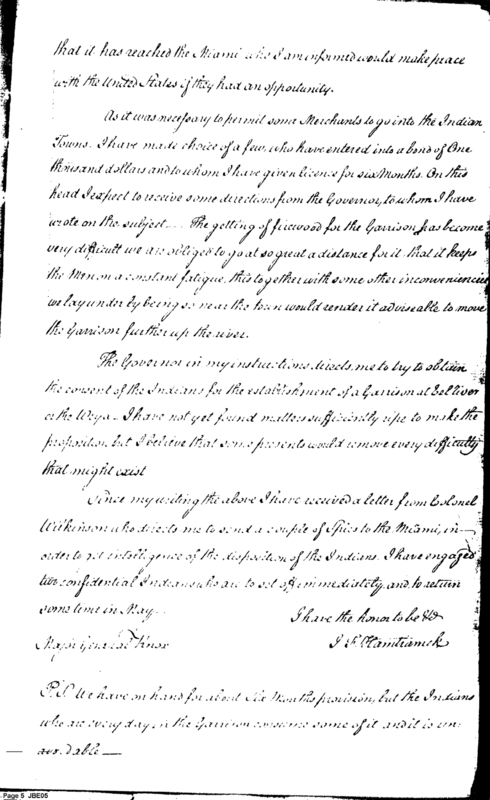 that it has reached the Miami who I am informed would make peace
with the United States if they had an opportunity.
As it was necessary to permit some Merchants to go into the Indian
Towns. I have made choice of a few, who have entered into a bond of One
thousand dollars and to whom I have given licence for six Months. On this
head I expect to receive some directions from the Governor, to whom I have
wrote on the subject.... The getting of firewood for the Garrison has become
very difficult we are obliged to go at so great a distance for it that it keeps
the Men on a constant fatigue, this together with some other inconveniencies
we lay under by being so near the town would render it adviseable to move
the Garrison further up the river.
The Governor in my instructions directs me to try to obtain
the consent of the Indians for the establishment of a Garrison at Eel River
or the Weya. I have not yet found matters sufficiently ripe to make the
proposition, but I believe that some presents would remove every difficulty
that might exist
Since my writing the above I have received a letter from Colonel
Wilkinson who directs me to send a couple of Spies to the Miami, in
order to get intelligence of the disposition of the Indians. I have engaged
two confidential Indians who are to set off immediately, and to return
some time in May.
I have the honor to be &c
Major General Knox
J F Hamtramck
P.S. We have on hand for about Six Months provision, but the Indians
who are every day in the Garrison consume some of it and it is un-
avoidable —
Page 5 JBE05